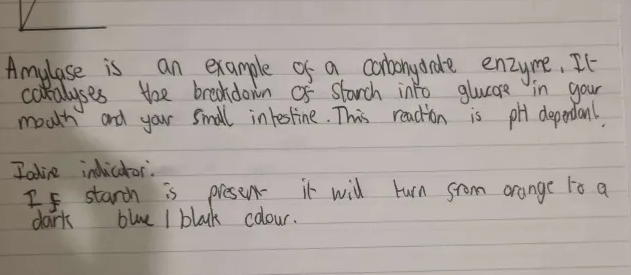 Amylase is an example of a carbohydrate enzyme. It
catalyses the breakdown of starch into glucose in your
mouth and your small intestine. This reaction is pH dependant.
Iodine indicator:
If starch is present it will turn from orange to a
dark blue / black colour.